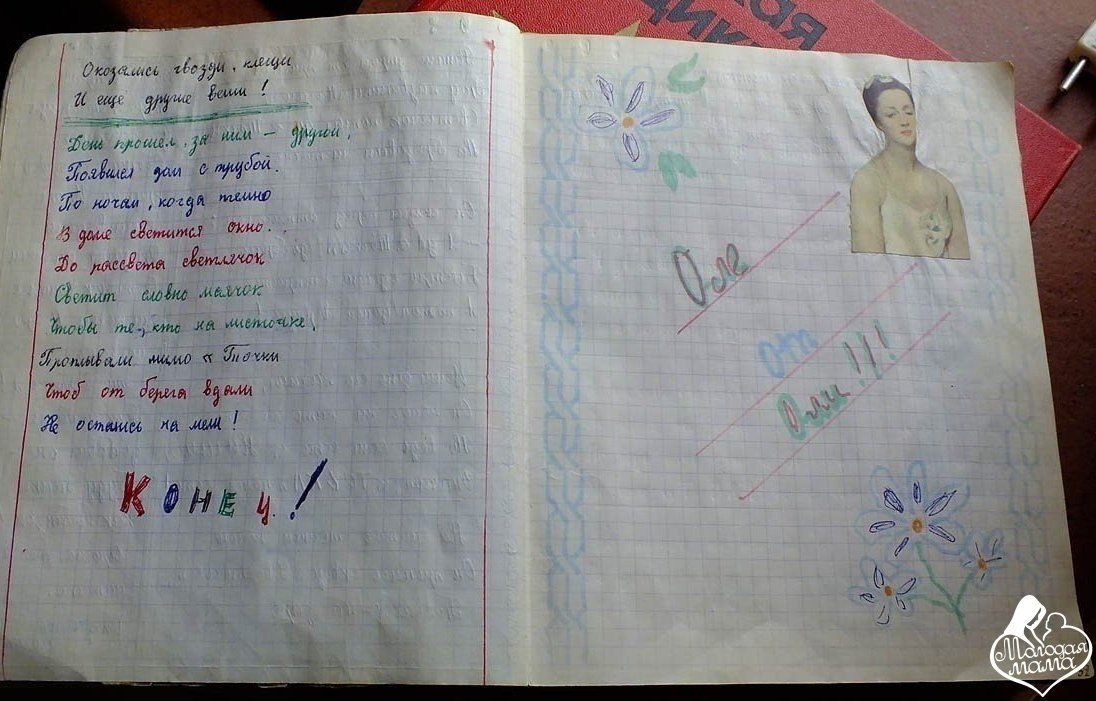 Оказались гвозди, клещи
И ещё другие вещи!
День прошел, за ним – другой,
Появился дом с трубой.
По ночам, когда темно
В доме светится окно..
До рассвета светлячок
Светит словно маячок
Чтобы те, кто на листочке,
Проплывали мимо "Точки
Чтоб от берега вдали
Не остались на мели!
Конец!
Оле
от
Оли!!!
Молодая
мама